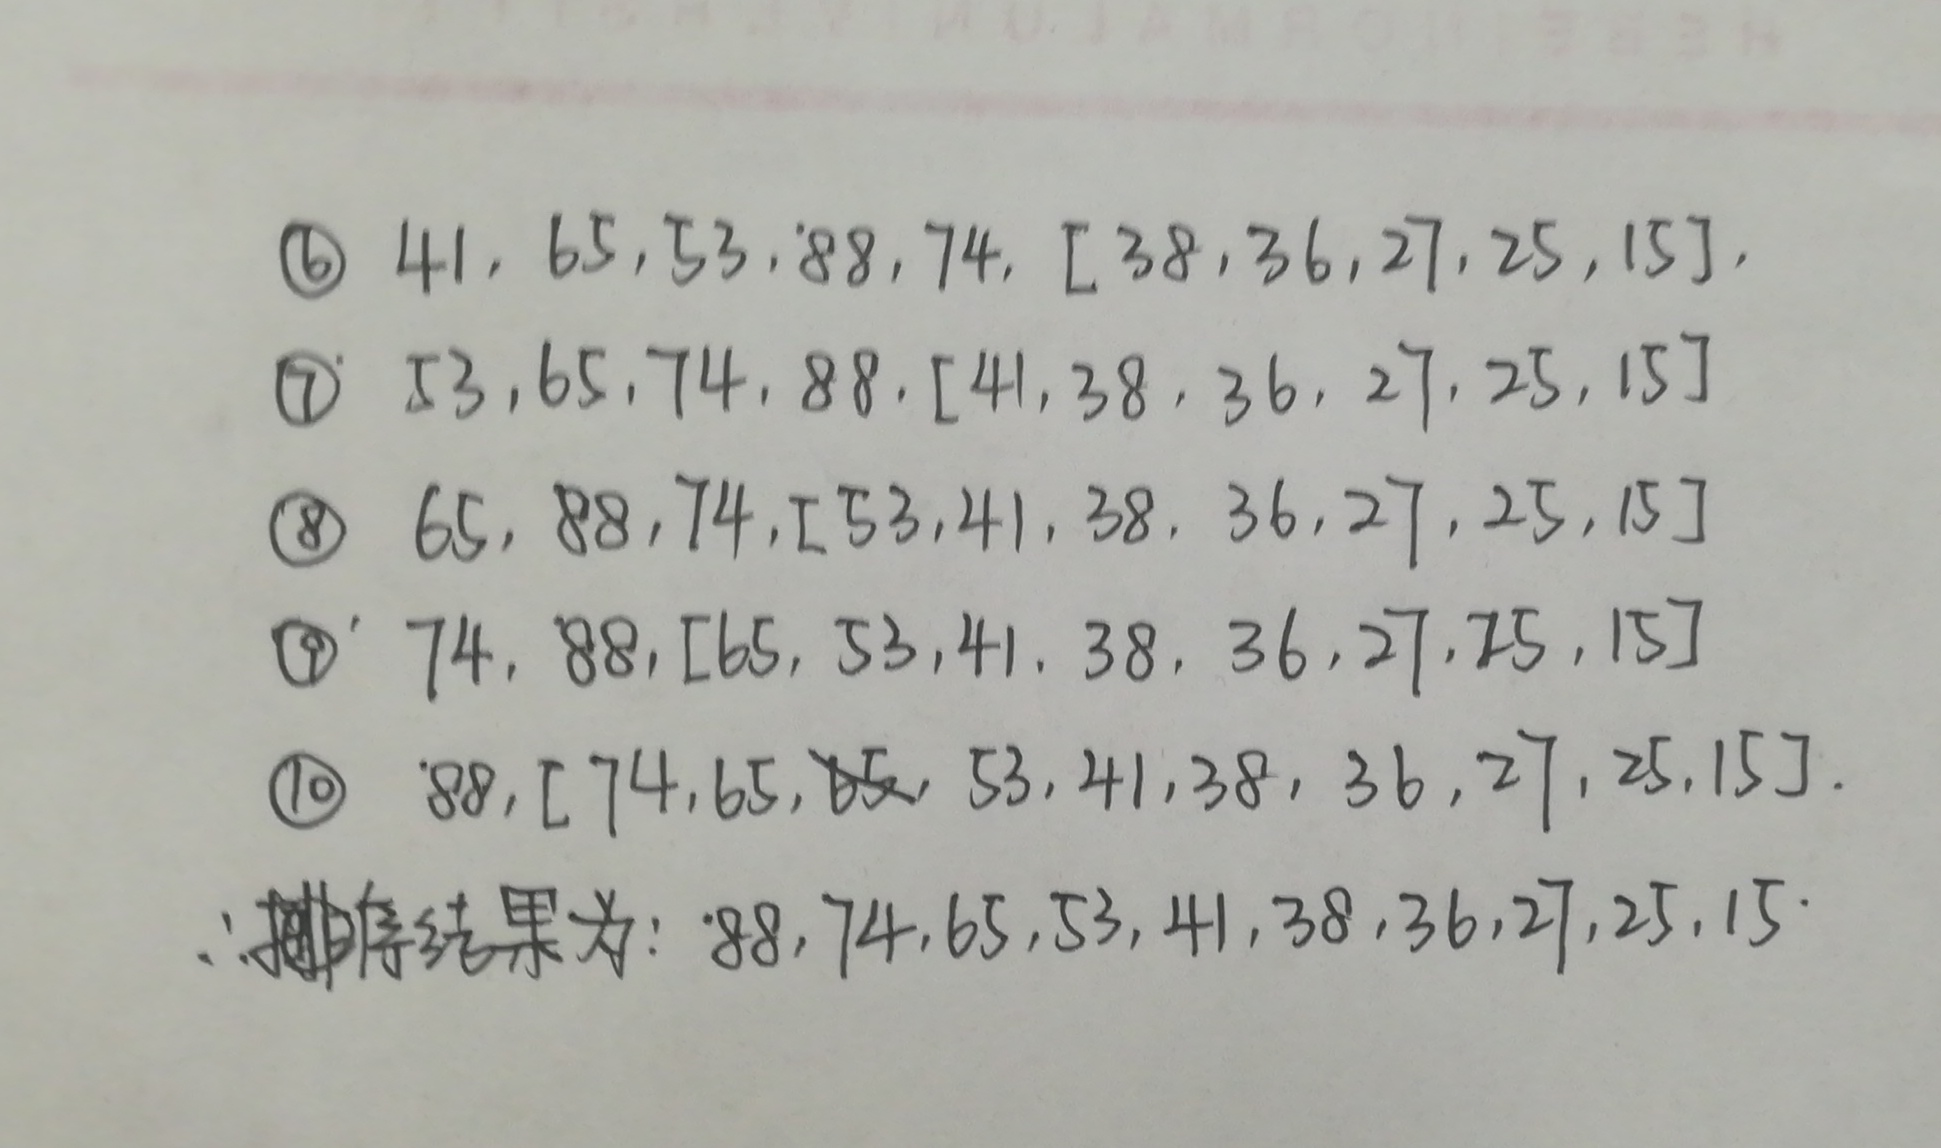 ⑥ 41, 65, 53, 88, 74, [38, 36, 27, 25, 15],
⑦ 53, 65, 74, 88, [41, 38, 36, 27, 25, 15]
⑧ 65, 88, 74, [53, 41, 38, 36, 27, 25, 15]
⑨ 74, 88, [65, 53, 41, 38, 36, 27, 25, 15]
⑩ 88, [74, 65, 53, 41, 38, 36, 27, 25, 15].
∴排序结果为: 88, 74, 65, 53, 41, 38, 36, 27, 25, 15.